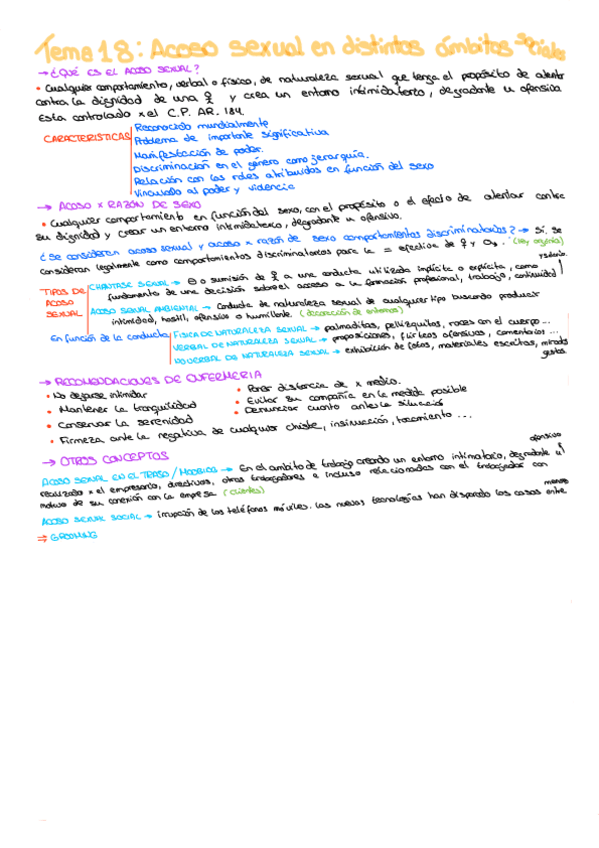 Tema 18: Acoso sexual en distintos ámbitos sociales
→ ¿QUÉ ES EL ACOSO SEXUAL?
• Cualquier comportamiento, verbal o físico, de naturaleza sexual que tenga el propósito de atentar
contra la dignidad de una ♀ y crea un entorno intimidatorio, degradante u ofensivo.
Esta controlado x el C.P. AR. 184.
CARACTERISTICAS
Reconocido mundialmente
Problema de importante significativa
Manifestación de poder.
Discriminación en el género como jerarquía.
Relación con los roles atribuidos en función del sexo
Vinculado al poder y violencia
→ ACOSO X RAZÓN DE SEXO
• Cualquier comportamiento en función del sexo, con el propósito o el efecto de atentar contra
su dignidad y crear un entorno intimidatorio, degradante u ofensivo.
¿Se consideran acoso sexual y acoso x razón de sexo comportamientos discriminatorios? → Sí, se
consideran legalmente como comportamientos discriminatorios para la = efectiva de ♀ y ♂. (ley orgánica)
TIPOS DE ACOSO SEXUAL
CHANTAJE SEXUAL → o sumisión de ♀ a una conducta utilizada implícita o explícita, como
fundamento de una decisión sobre el acceso a la formación profesional, trabajo, continuidad
ACOSO SEXUAL AMBIENTAL → Conducta de naturaleza sexual de cualquier tipo buscando producir
intimidad, hostil, ofensivo o humillante.
En función de la conducta
FISICA DE NATURALEZA SEXUAL → palmaditas, pellizquitos, roces con el cuerpo ...
VERBAL DE NATURALEZA SEXUAL → proposiciones, flirteos ofensivos, comentarios ...
NO VERBAL DE NATURALEZA SEXUAL → exhibición de fotos, materiales escritos, miradas
gestos.
→ RECOMENDACIONES DE ENFERMERIA
• No dejarse intimidar
• Mantener la tranquilidad
• Conservar la serenidad
• Poner distancia de x medio.
• Evitar su compañía en la medida posible
• Denunciar cuanto antes la situación
• Firmeza ante la negativa de cualquier chiste, insinuación, tocamiento ...
→ OTROS CONCEPTOS
ACOSO SEXUAL EN EL TRABAJO / → En el ambito de trabajo creando un entorno intimatorio, degradante u
ofensivo
realizado x el empresario, directivos, otros trabajadores e incluso relacionados con el trabajador con
motivo de su conexión con la empresa (clientes)
ACOSO SEXUAL SOCIAL → irrupción de los teléfonos móviles. las nuevas tecnologías han disparado los casos entre
menores
⇒ GROOMING